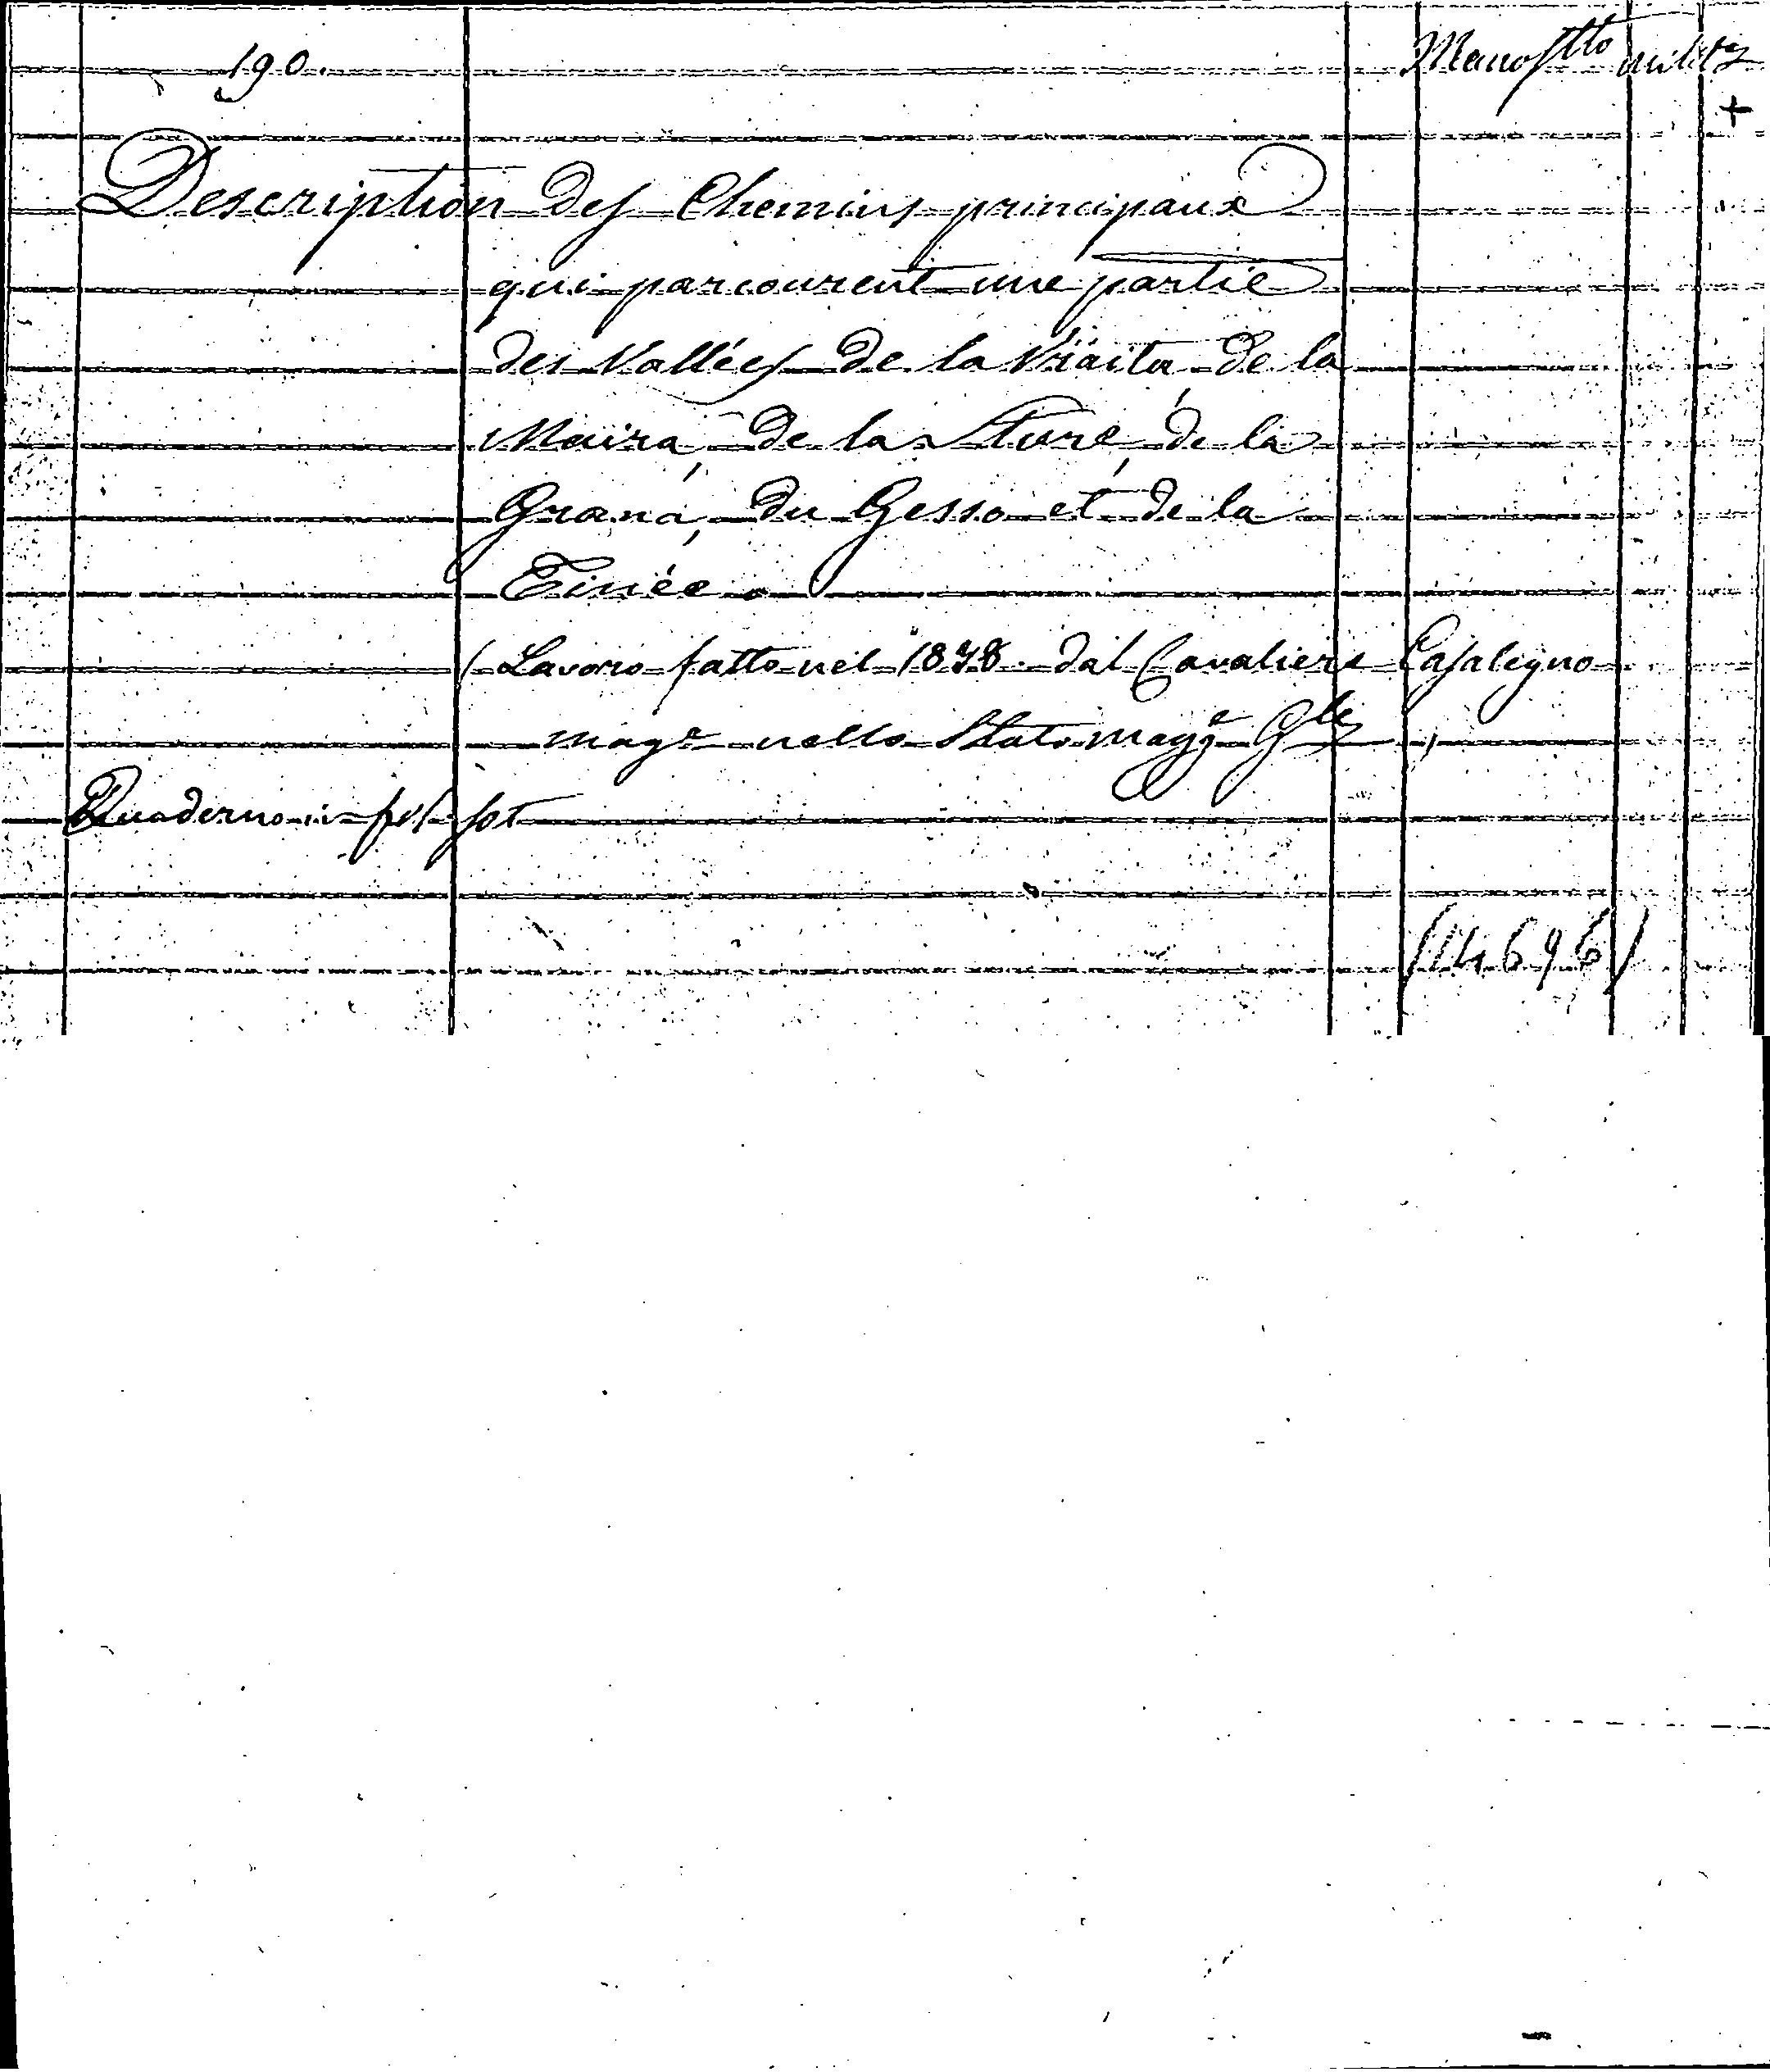 190. Manosstto milit.e
+
Description des Chemins principaux
qui parcourent une partie
des Vallées de la Vraita, de la
Maira, de la Sture, de la
Grana, du Gesso et de la
Tinée.
(Lavoro fatto nel 1838. dal Cavaliere Casalegno
magre nello Stato magge Gle)
Quaderno in fol
(14696)